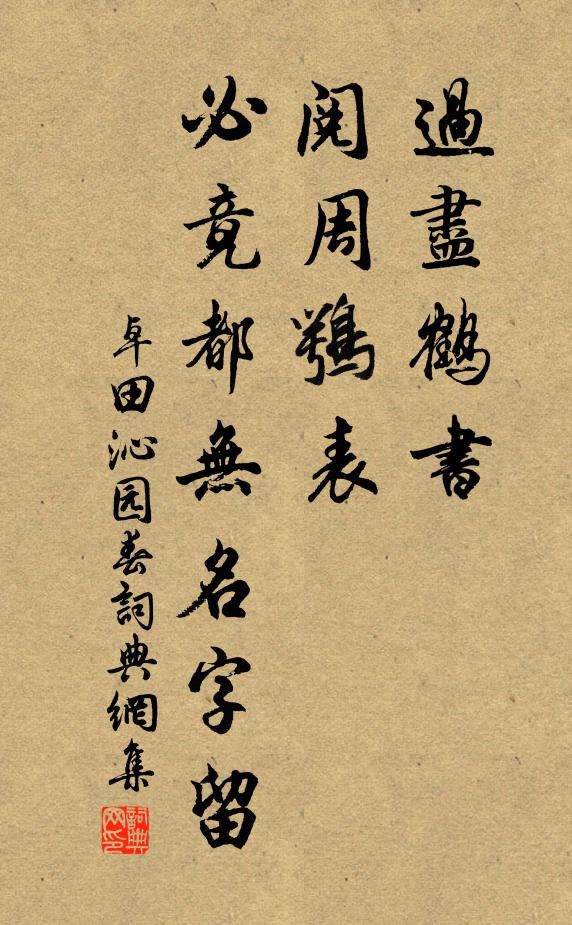 過盡鶴書
閱周鶚表
必竟都無名字留
卓田沁园春詞典網集
詞典网印